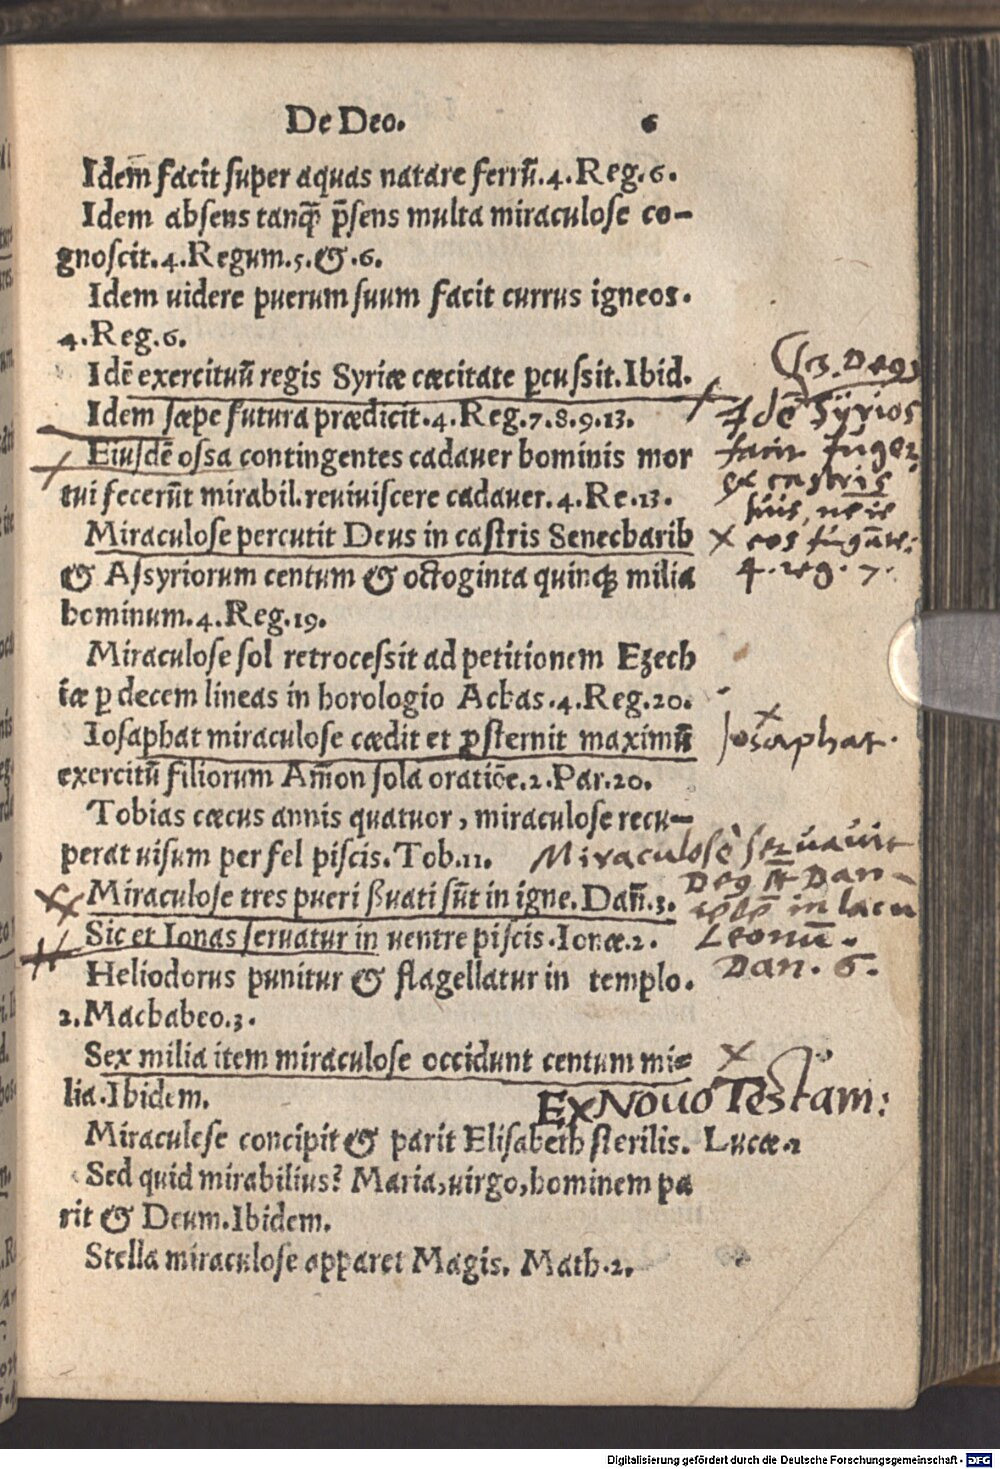 De Deo. 6
Idem facit super aquas natare ferrũ.4.Reg.6.
Idem absens tanq̃ p̃sens multa miraculose co-
gnoscit.4.Regum.5.&.6.
Idem uidere puerum suum facit currus igneos.
4.Reg.6.
Idẽ exercituũ regis Syriæ cæcitate ꝑcussit.Ibid.
Idem sæpe futura prædicit.4.Reg.7.8.9.13.
Eiusdẽ ossa contingentes cadauer hominis mor
tui fecerũt mirabil.reuiuiscere cadauer.4.Re.13.
Miraculose percutit Deus in castris Senecharib
& Assyriorum centum & octoginta quinq; milia
hominum.4.Reg.19.
Miraculose sol retrocessit ad petitionem Ezech
iæ ꝑ decem lineas in horologio Achas.4.Reg.20.
Iosaphat miraculose cædit et ꝓsternit maximũ
exercitũ filiorum Am̃on sola oratiõe.2.Par.20.
Tobias cæcus annis quatuor, miraculose recu-
perat uisum per fel piscis.Tob.11.
Miraculose tres pueri ßuati sũt in igne.Dañ.3.
Sic et Ionas seruatur in uentre piscis.Ionæ.2.
Heliodorus punitur & flagellatur in templo.
2.Machabeo.3.
Sex milia item miraculose occidunt centum mi=
lia.Ibidem.
Ex Novo Testam:
Miraculese concipit & parit Elisabeth sterilis. Lucæ.1
Sed quid mirabilius? Maria,uirgo,hominem pa
rit & Deum.Ibidem.
Stella miraculose apparet Magis. Math.2.
Idẽ Syrios
facit
castris
suis, ne
eos
4.reg.7.
Josaphat.
Miraculosè servavit
Dan-
in lacu
Leonũ.
Dan.6.
Digitalisierung gefördert durch die Deutsche Forschungsgemeinschaft - DFG